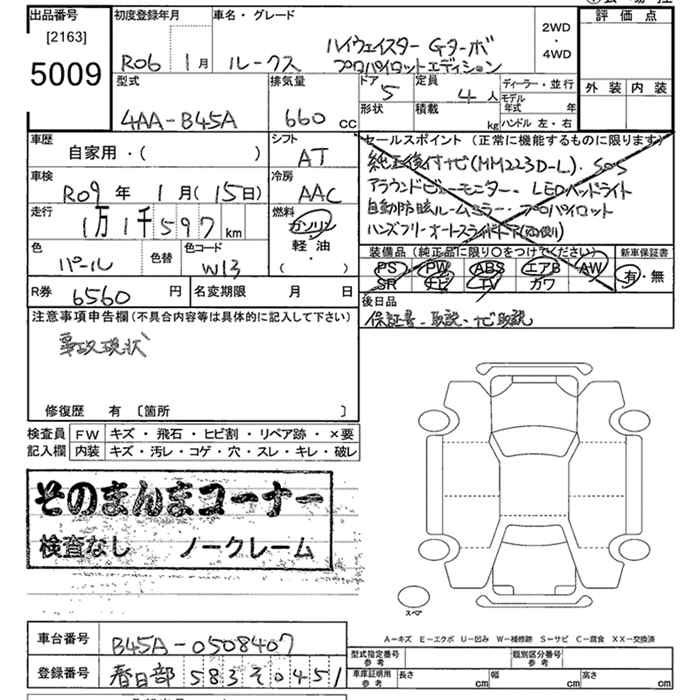 出品番号
[2163]
5009
初度登録年月
R06 1月
車名・グレード
ルークス
ハイウェイスター Gターボ
プロパイロットエディション
2WD
・
4WD
評価点
外装 内装
型式
4AA-B45A
排気量
660 cc
ドア
5
定員
4 人
形状
積載
kg
ディーラー・並行
モデル
年式 年
ハンドル 左・右
車歴
自家用・( )
シフト
AT
車検
R09 年 1 月(15日)
冷房
AAC
走行
1万1千597 km
燃料
ガソリン
軽・油
・
( )
色
パール
色替
色コード
W13
セールスポイント(正常に機能するものに限ります)
純正後付ナビ(MM223D-L)・SOS
アラウンドビューモニター・LEDヘッドライト
自動防眩ルームミラー・プロパイロット
ハンズフリーオートスライドドア(両側)
装備品(純正品に限り○をつけてください)
新車保証書
PS PW ABS エアB AW
SR ナビ TV カワ
有・無
R券
6560 円
名変期限 月 日
後日品
保証書・取説・ナビ取説
注意事項申告欄(不具合内容等は具体的に記入して下さい)
事故現状
修復歴 有 〔箇所 〕
検査員
記入欄
FW キズ・飛石・ヒビ割・リペア跡・×要
内装 キズ・汚レ・コゲ・穴・スレ・キレ・破レ
そのまんまコーナー
検査なし ノークレーム
スペア
A-キズ E-エクボ U-凹み W-補修跡 S-サビ C-腐食 XX-交換済
車台番号
B45A-0508407
登録番号
春日部 583 そ 0451
型式指定番号
参考
類別区分番号
参考
車庫証明用
参考
長さ cm 幅 cm 高さ cm